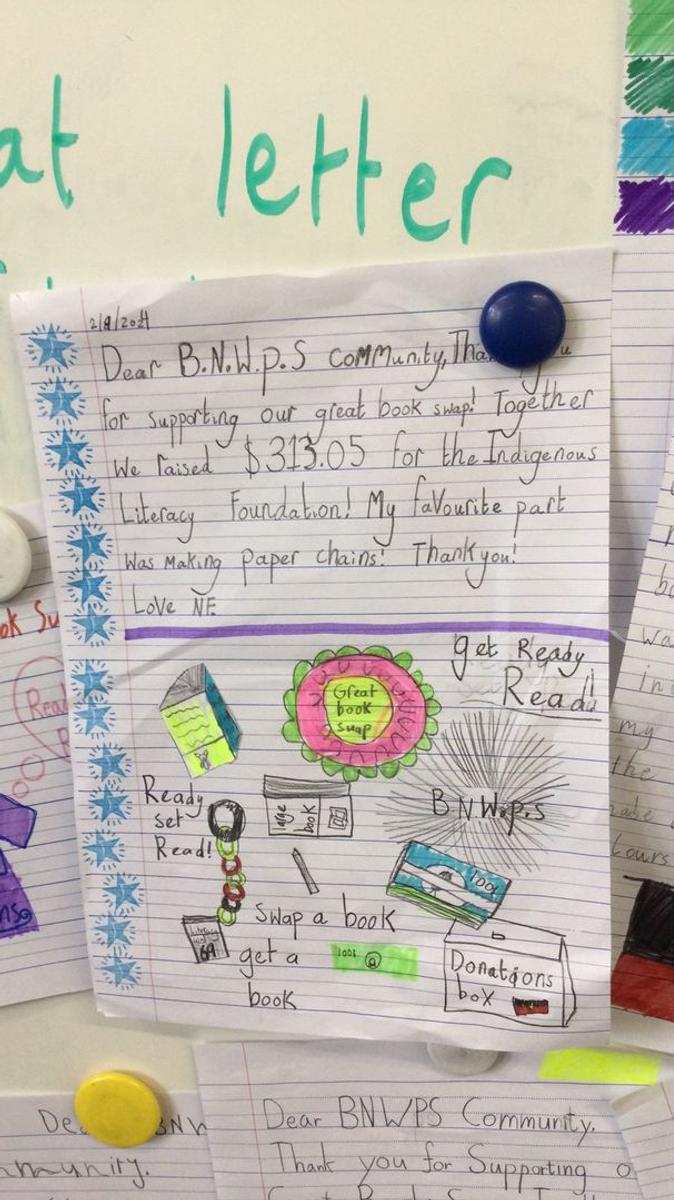 at letter
2/9/2021
Dear B.N.W.p.S community, Tha
for supporting our great book swap! Together
We raised $313.05 for the Indigenous
Literacy Foundation! My favourite part
was making paper chains! Thank you!
Love NF
get Ready
Read!
Great
book
swap
Ready
set
Read!
large
book
B.N.W.p.s
swap a book
get a
book
100
Donations
box
ok Su
Read
R
my
the
tours
Dea BNW
mmunity.
Dear BNWPS Community.
Thank you for Supporting o